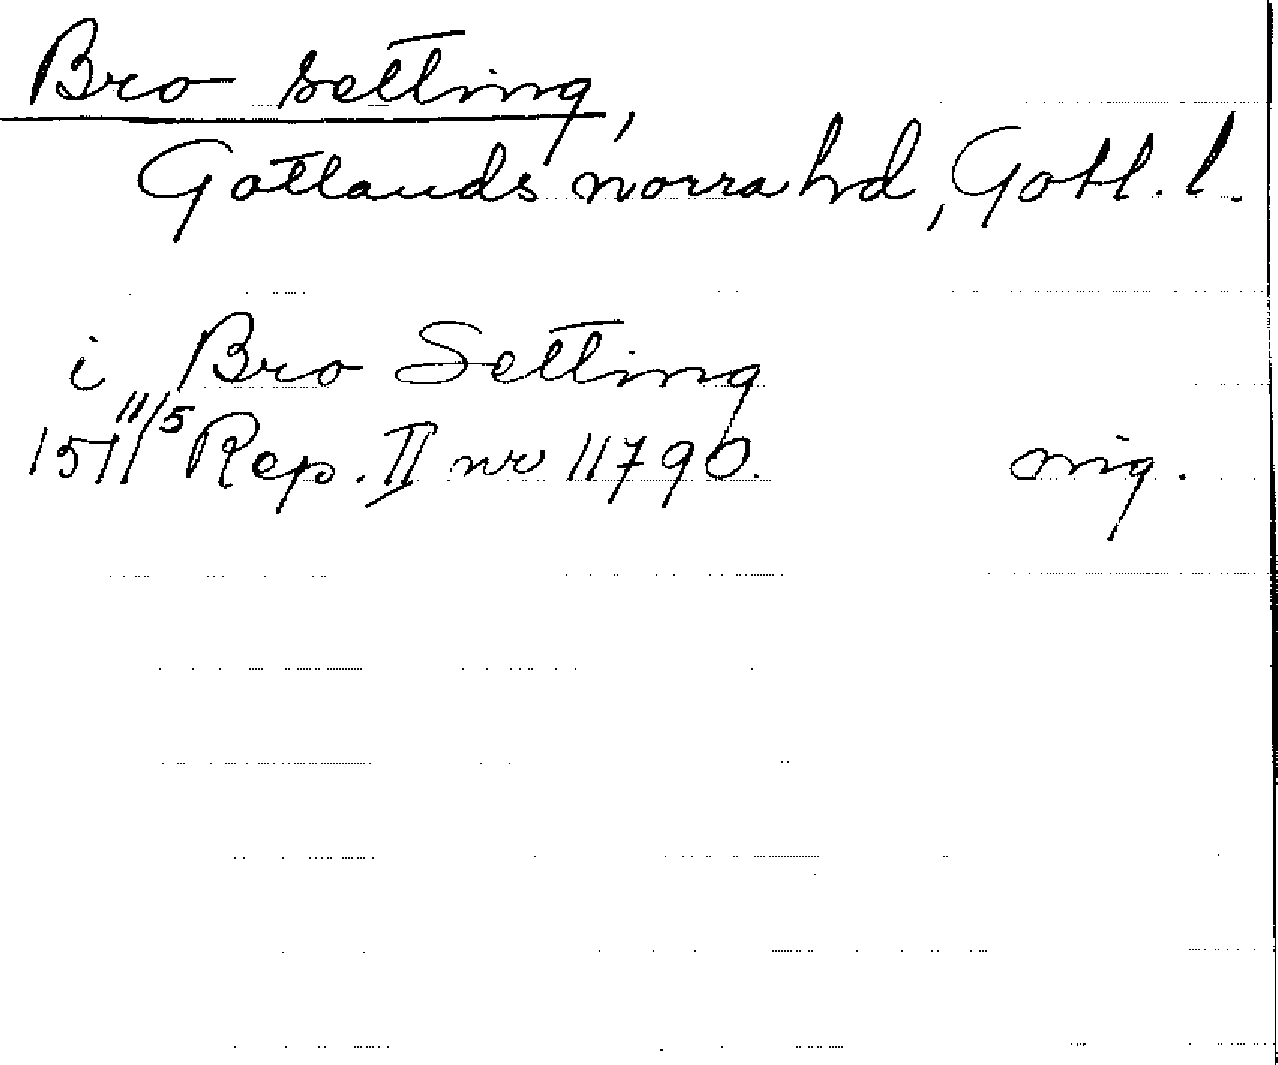 Bro setting,
Gotlands norra hd, Gotl. l.
i Bro Setting
1511 11/5 Rep. II nr 11790. orig.